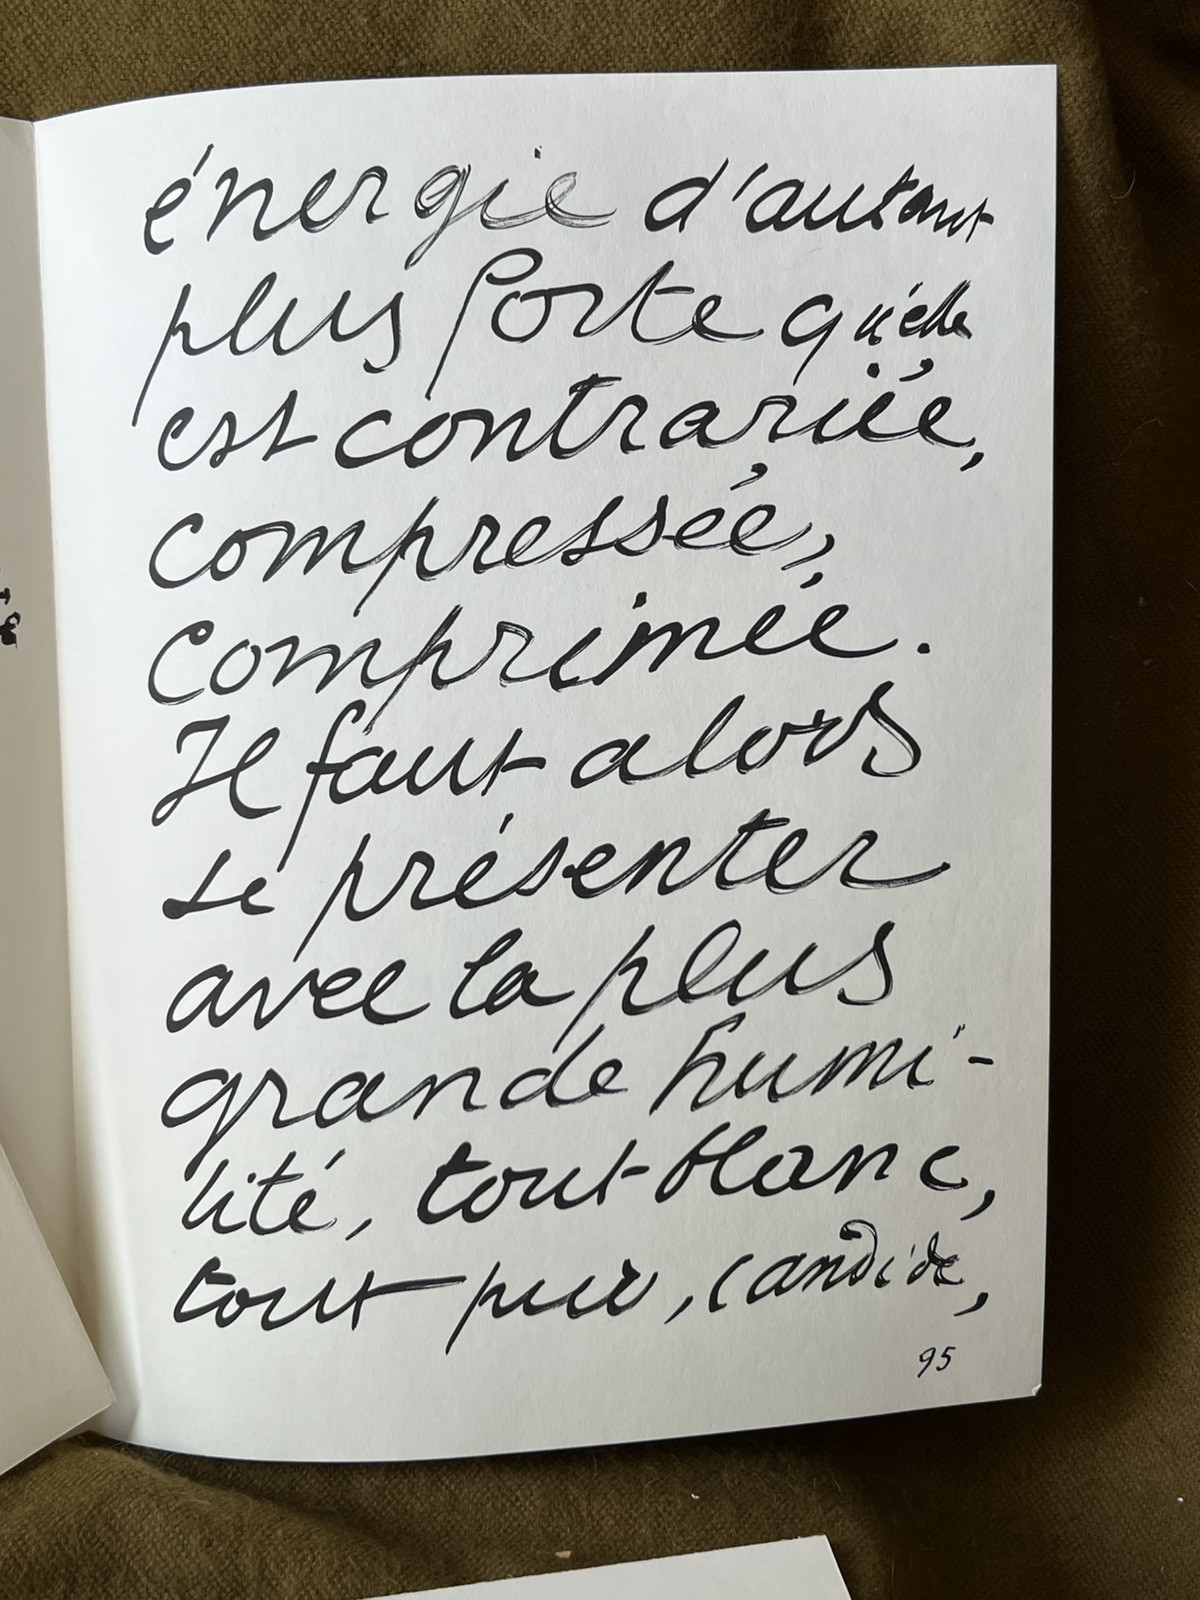 énergie d'autant
plus forte qu'elle
est contrariée,
compressée,
comprimée.
Il faut alors
se présenter
avec la plus
grande humi-
lité, tout blanc,
tout pur, candide,
95